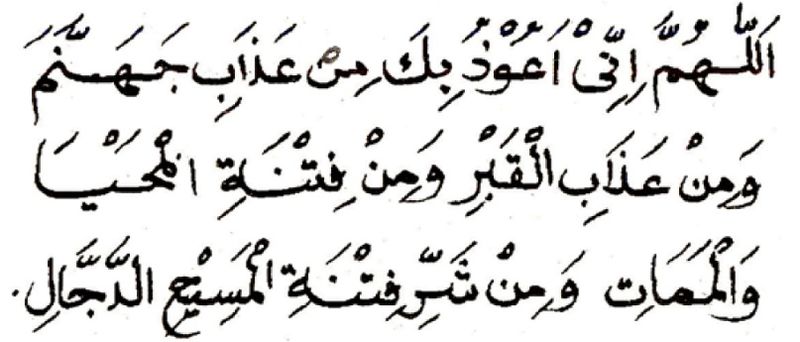 اَللّٰهُمَّ اِنِّىْ اَعُوْذُ بِكَ مِنْ عَذَابِ جَهَنَّمَ
وَمِنْ عَذَابِ الْقَبْرِ وَمِنْ فِتْنَةِ الْمَحْيَا
وَالْمَمَاتِ وَمِنْ شَرِّ فِتْنَةِ الْمَسِيْحِ الدَّجَّالِ.